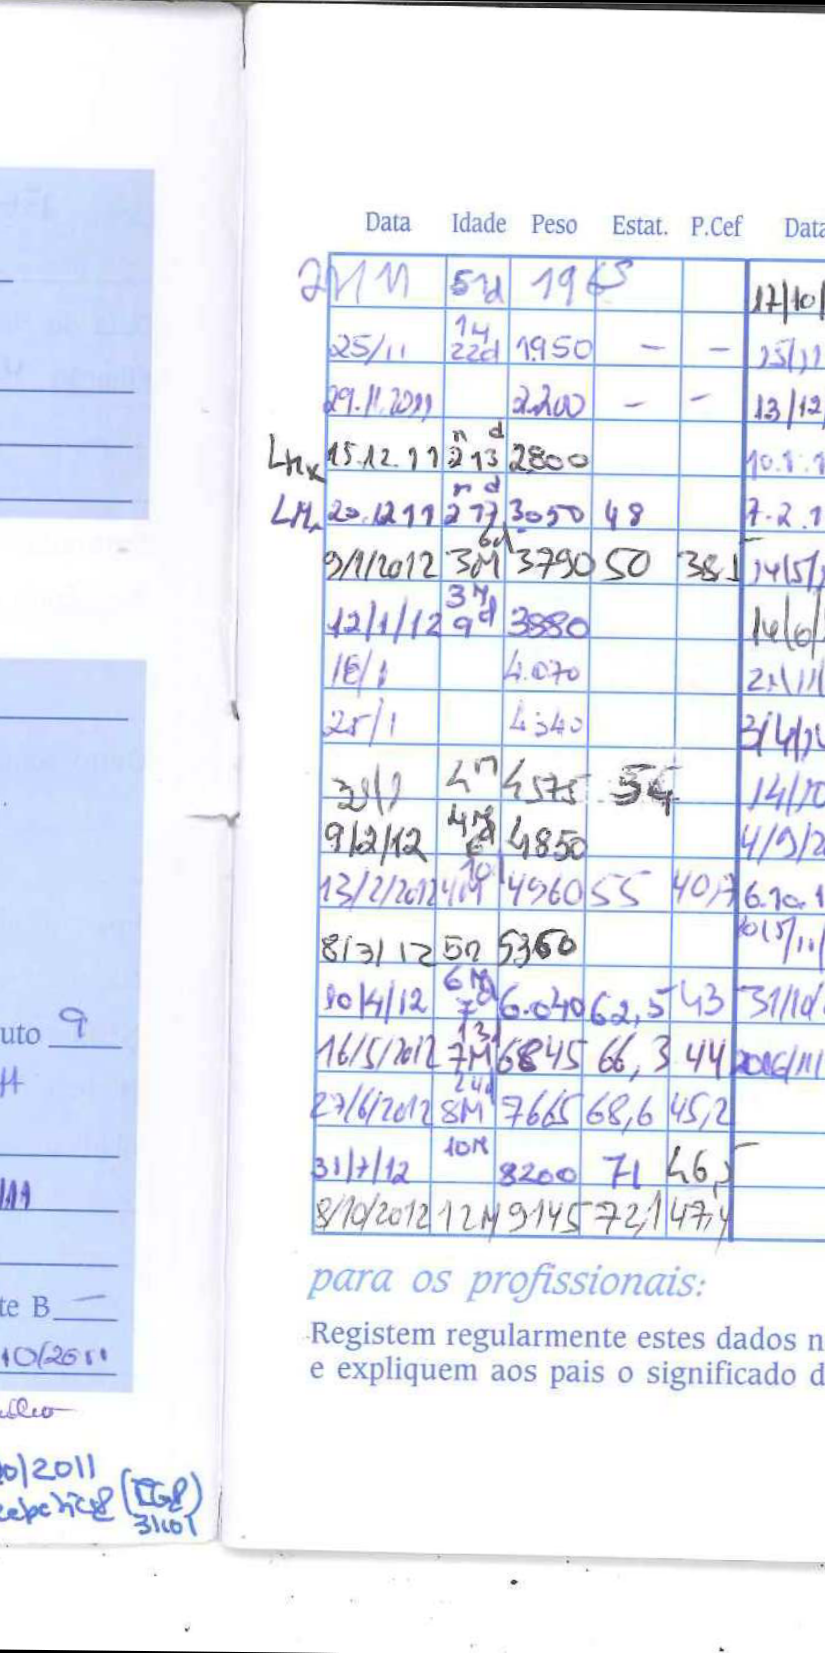 uto 9
te B —
10/2011
10/2011
31101
Data Idade Peso Estat. P.Cef Data
17/10/
25/11 22d 1950 – –
29.11.2011 2.200 – – 13/12/
15.12.11 2 m 13 d 2800 10.1.1
20.12 11 2 m 17 d 3050 48 7.2.1
9/1/2012 3M 6d 3790 50 38,5 14/5/
12/1/12 3M 9d 3880 14/6/
18/1 4.070
25/1 4340 3/4/
4m 4575 54 14/10
9/2/12 4850 4/9/2
13/2/2012 4M 10d 4960 55 40,7 6.10.1
8/3/12 5m 5360
10/4/12 6M 7d 6.040 62,5 43 31/10/
16/5/2012 7M 13d 6845 66,3 44
27/6/2012 8M 24d 7665 68,6 45,2
31/7/12 10M 8200 71 46,5
8/10/2012 12M 9145 72,1 47,4
para os profissionais:
Registem regularmente estes dados n
e expliquem aos pais o significado d